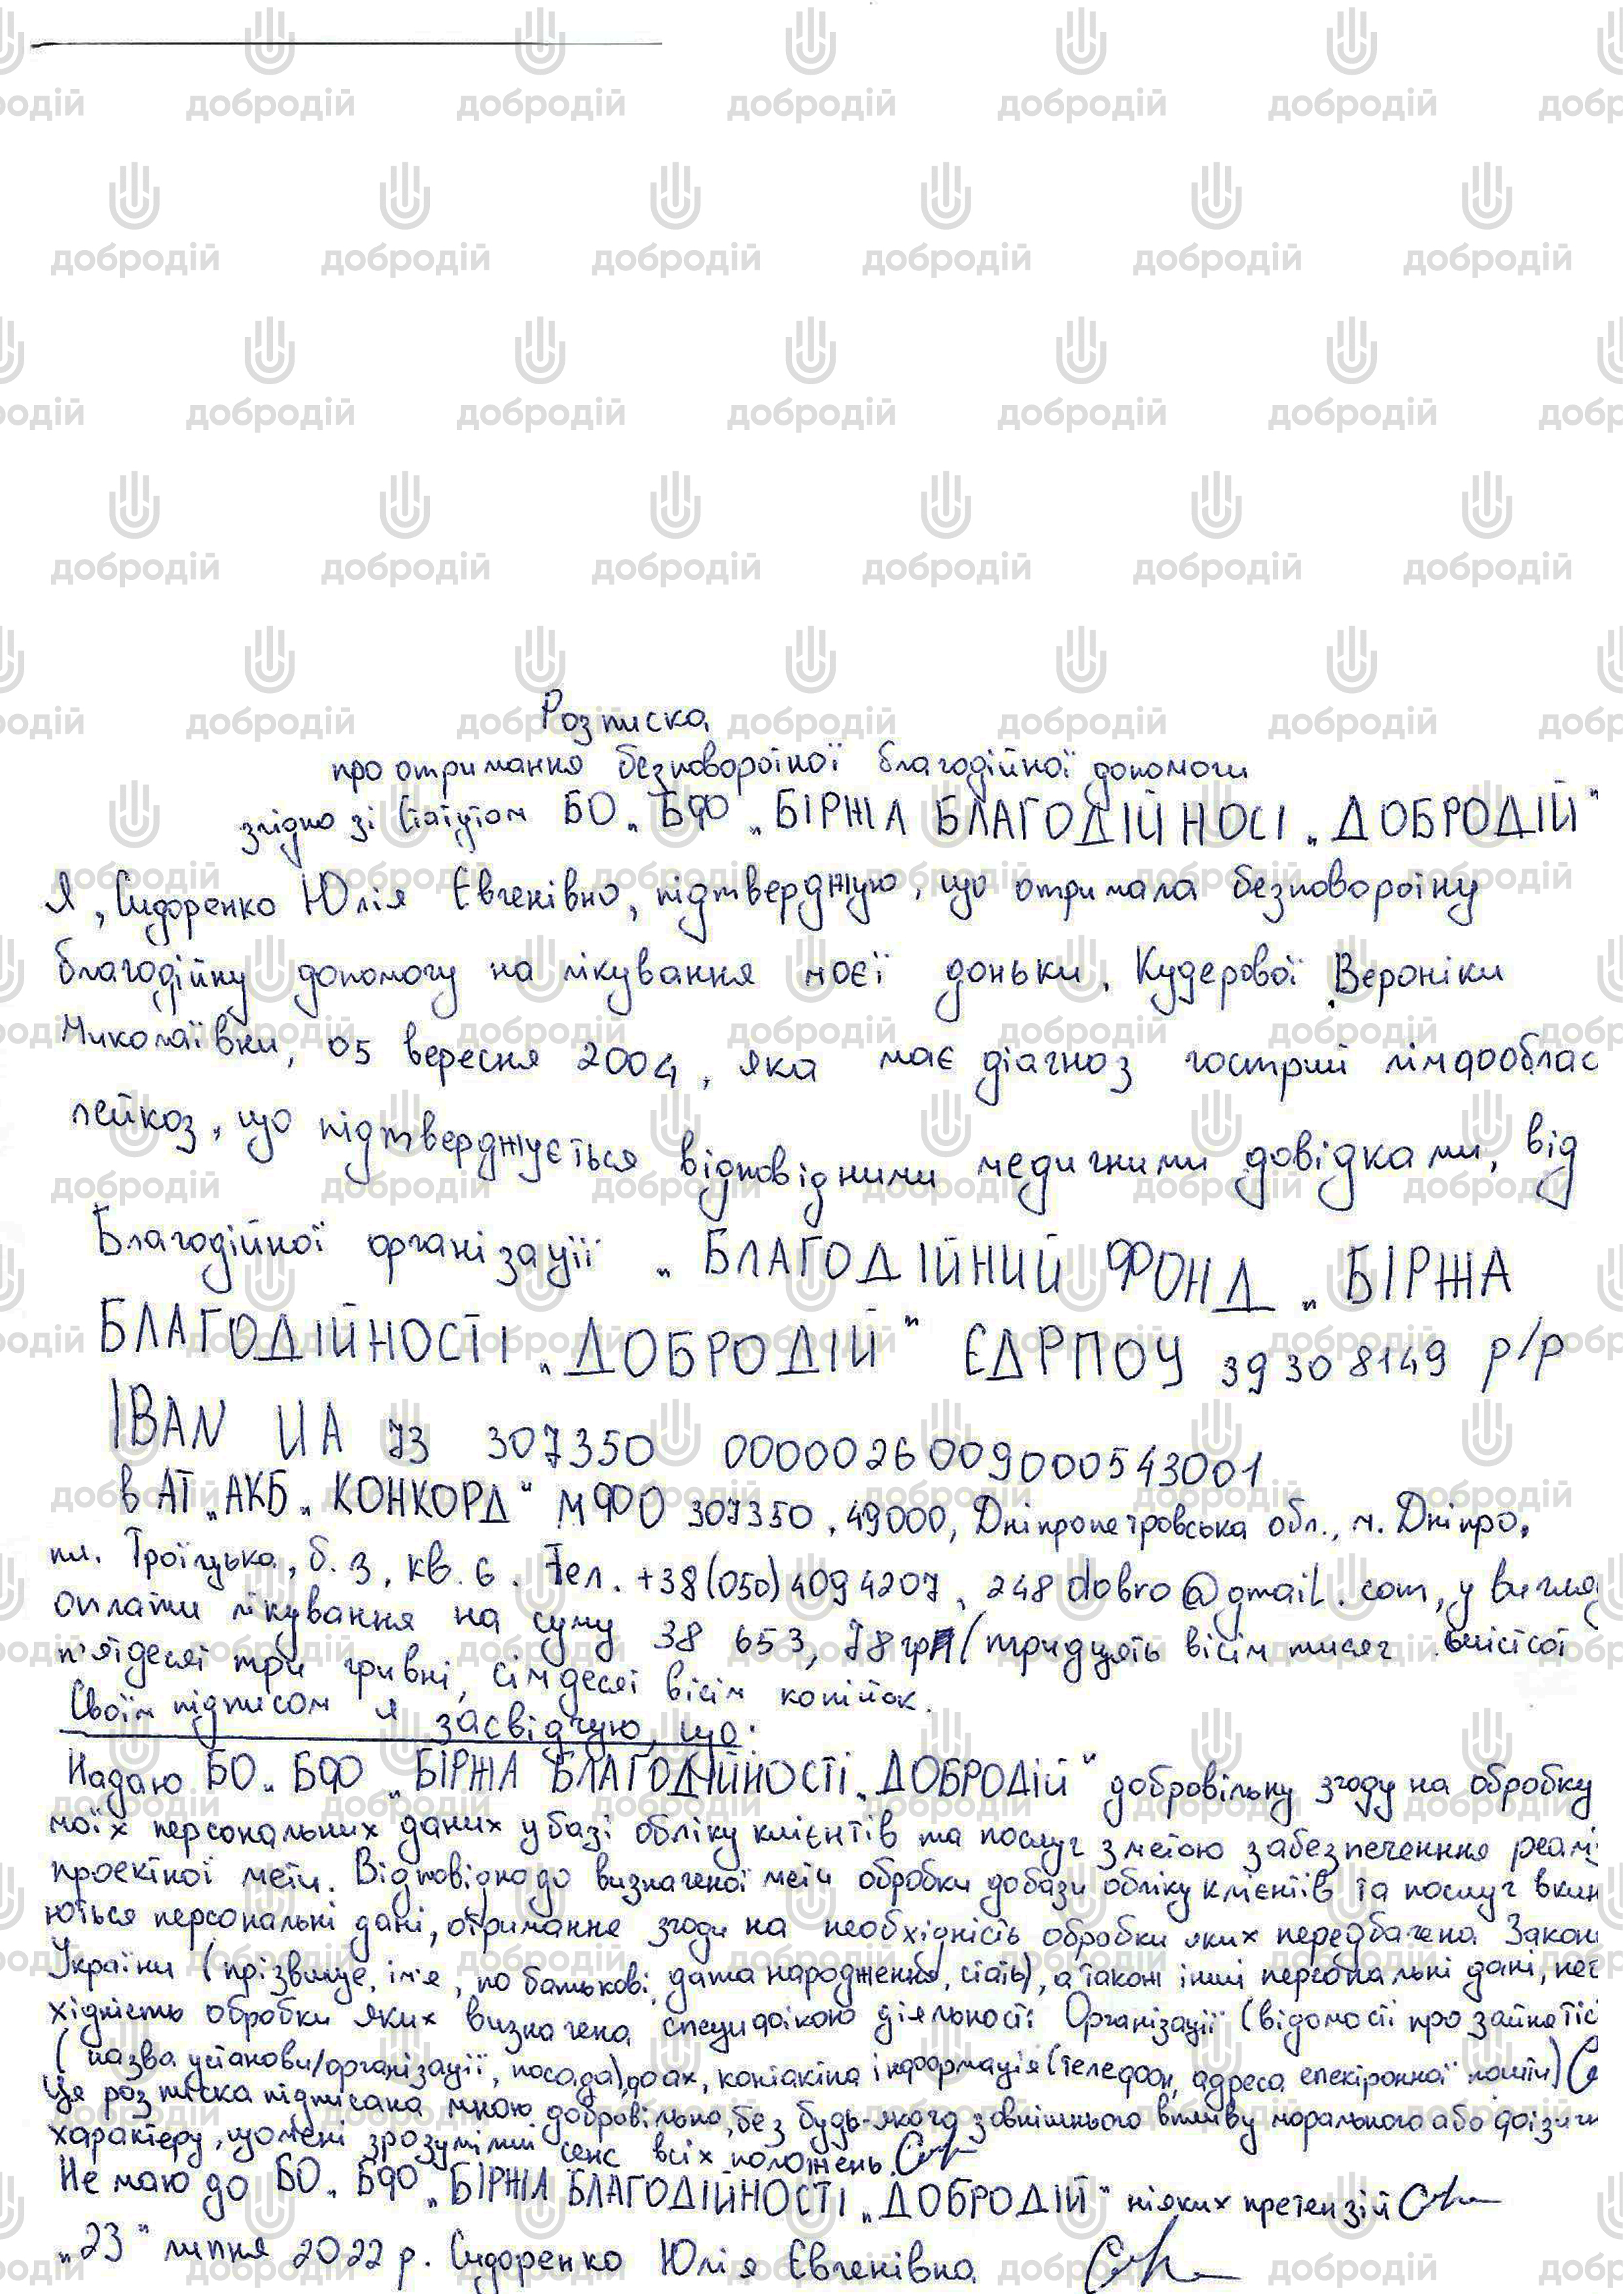 Розписка
про отримання безповоротної благодійної допомоги
згідно зі Статутом БО „БФ „БІРЖА БЛАГОДІЙНОСІ „ДОБРОДІЙ"
Я, Сидоренко Юлія Євгенівна, підтверджую, що отримала безповоротну
благодійну допомогу на лікування моєї доньки, Кудерової Вероніки
Миколаївни, 05 вересня 2004, яка має діагноз гострий лімфооблас
лейкоз, що підтверджується відповідними медичними довідками, від
Благодійної організації „БЛАГОДІЙНИЙ ФОНД „БІРЖА
БЛАГОДІЙНОСТІ „ДОБРОДІЙ" ЄДРПОУ 39308149 р/р
IBAN UA 73 307350 0000026009000543001
в АТ „АКБ „КОНКОРД" МФО 307350, 49000, Дніпропетровська обл., м. Дніпро,
пл. Троїцька, б. 3, кв. 6. Тел. +38(050)4094207, 248dobro@gmail.com, у вигляд
оплати лікування на суму 38 653,78 грн (тридцять вісім тисяч шістсот
п'ятдесят три гривні, сімдесят вісім копійок.
Своїм підписом я засвідчую, що:
Надаю БО „БФО „БІРЖА БЛАГОДІЙНОСТІ „ДОБРОДІЙ" добровільну згоду на обробку
моїх персональних даних у базі обліку клієнтів та послуг з метою забезпечення реалі
проектної мети. Відповідно до визначеної мети обробки до бази обліку клієнтів та послуг вкл
ються персональні дані, отримання згоди на необхідність обробки яких передбачена Закон
України (прізвище, ім'я, по батькові, дата народження, стать), а також інші персональні дані, нео
хідність обробки яких визначена специфікою діяльності Організації (відомості про зайнятіс
(назва установи/організації, посада), фах, контактна інформація (телефон, адреса електронної пошти)
Ця розписка підписана мною добровільно, без будь-якого зовнішнього впливу морального або фізичн
характеру, що мені зрозумілий сенс всіх положень.
Не маю до БО „БФО „БІРЖА БЛАГОДІЙНОСТІ „ДОБРОДІЙ" ніяких претензій
„23" липня 2022 р. Сидоренко Юлія Євгенівна
добродій